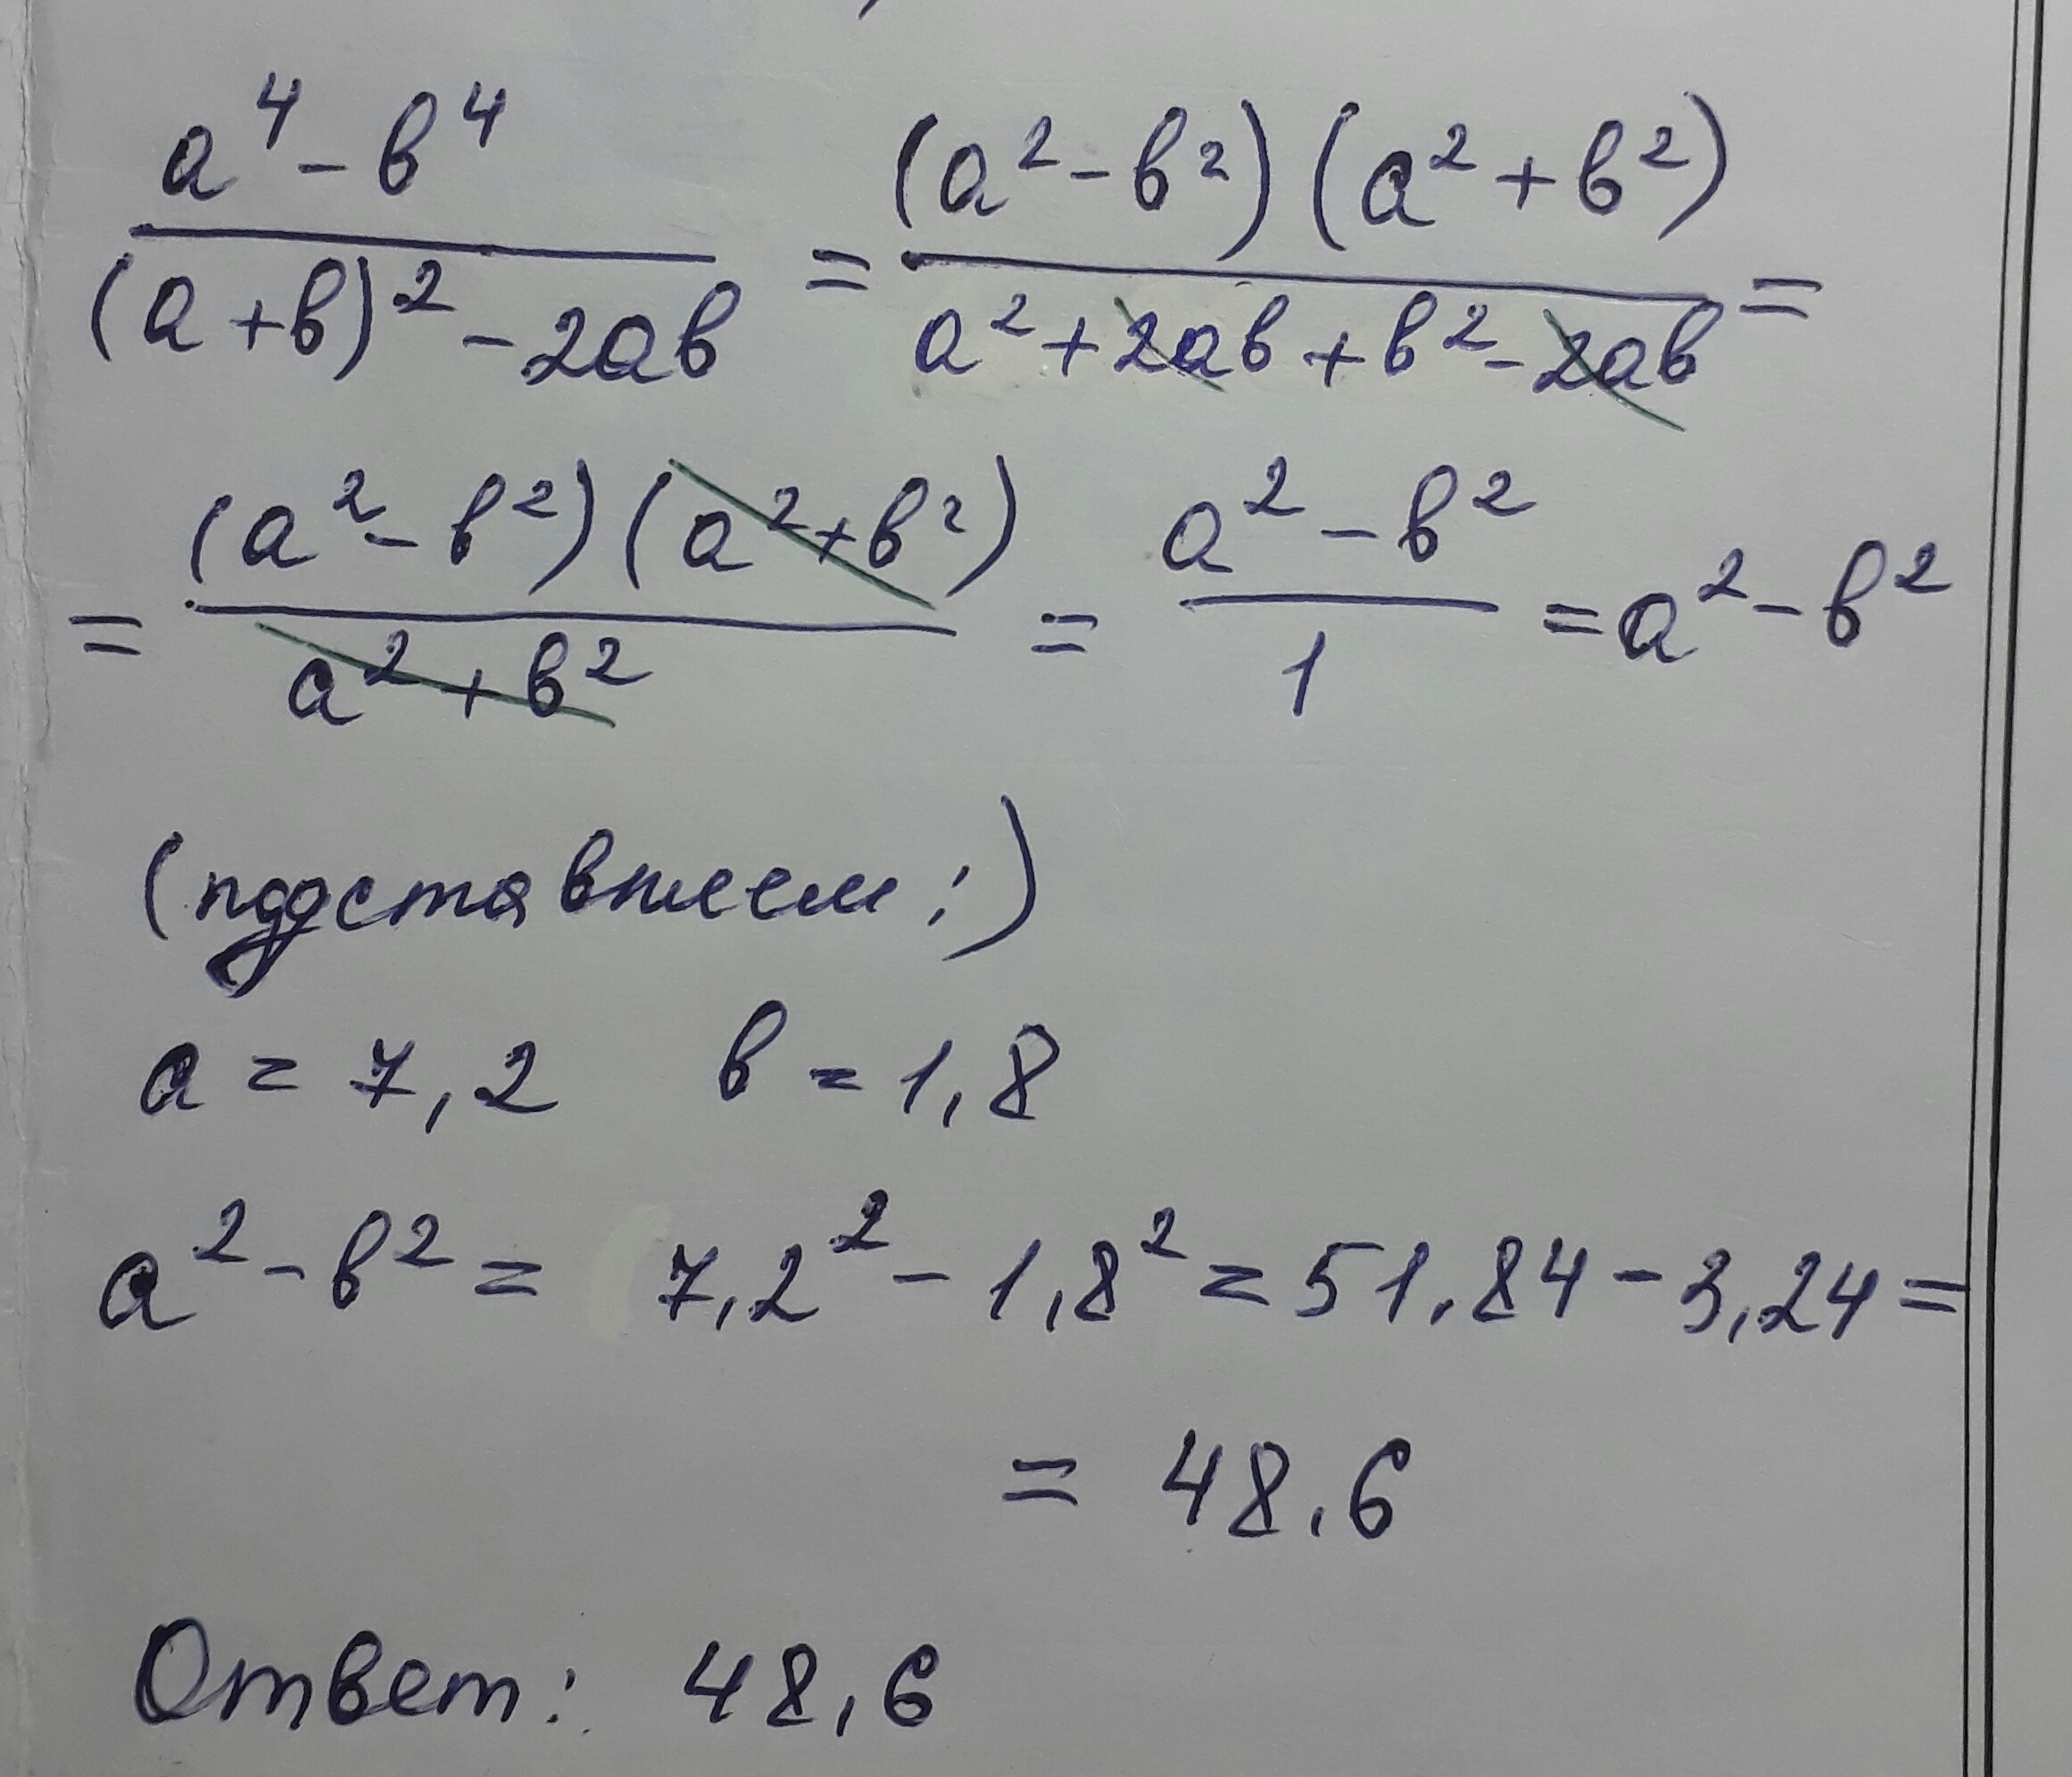 a⁴ - в⁴ / (a + в)² - 2aв = (a² - в²)(a² + в²) / a² + 2aв + в² - 2aв =
= (a² - в²)(a² + в²) / a² + в² = a² - в² / 1 = a² - в²
(подставляем:)
a = 7,2 в = 1,8
a² - в² = 7,2² - 1,8² = 51,84 - 3,24 =
= 48,6
Ответ: 48,6